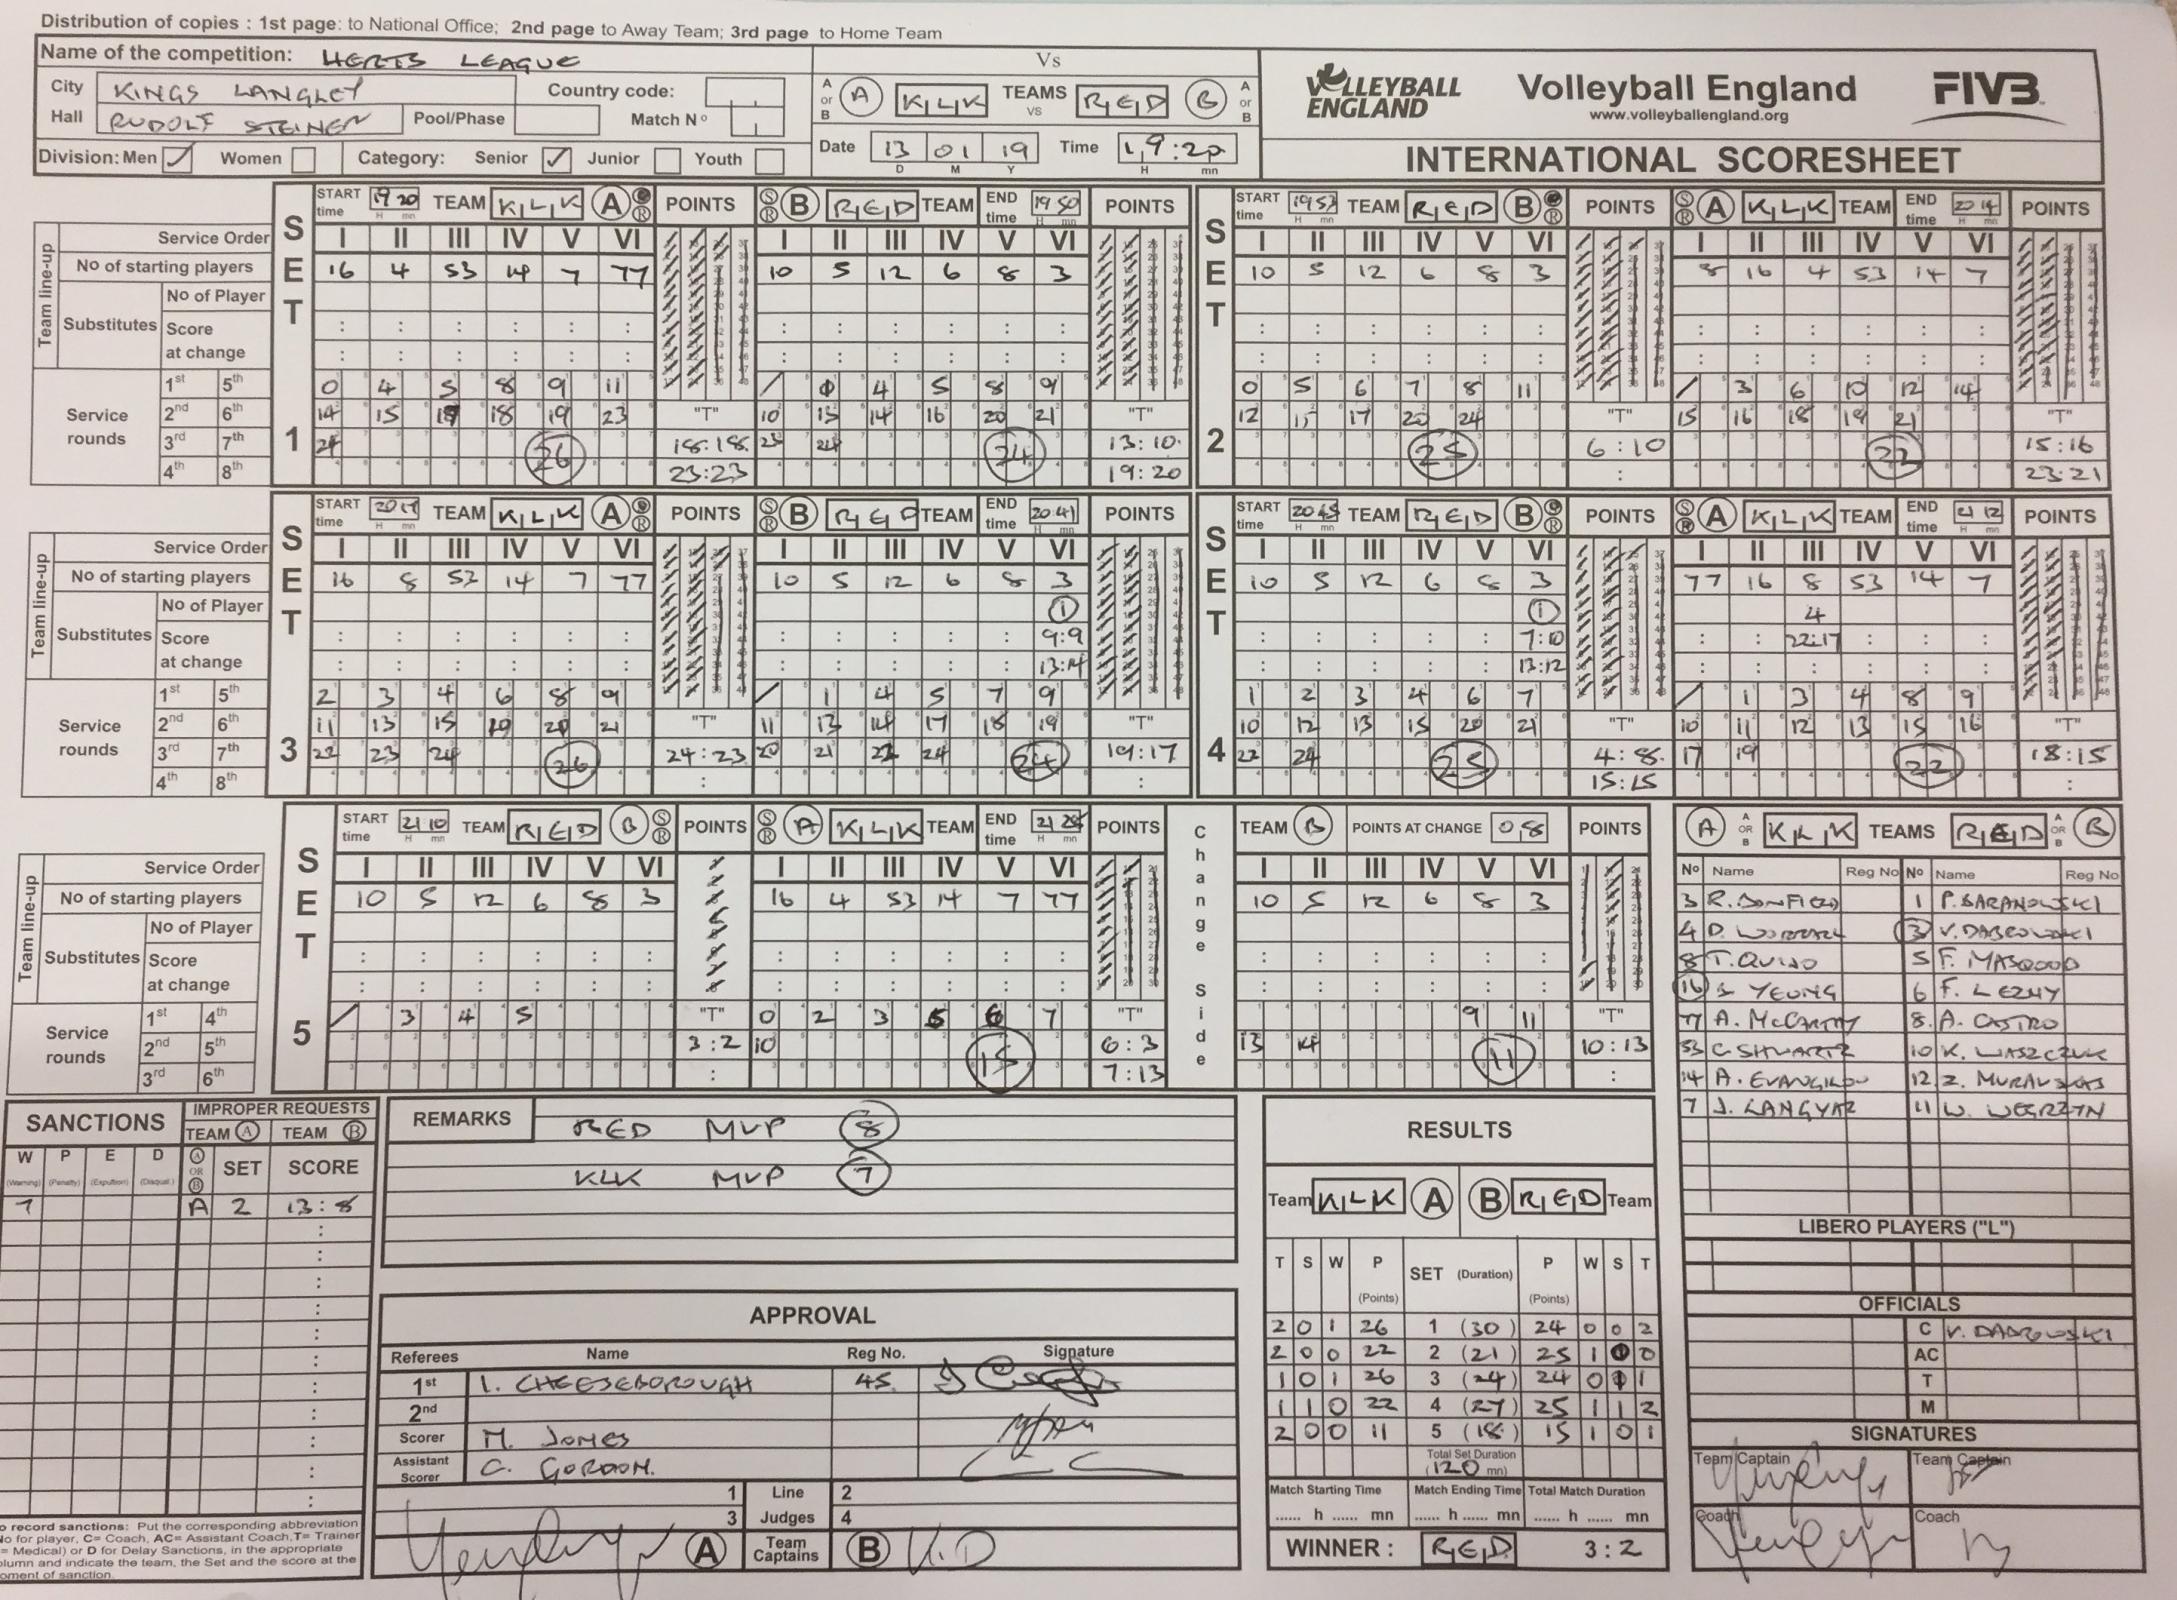 Distribution of copies : 1st page: to National Office; 2nd page to Away Team; 3rd page to Home Team
Name of the competition: HERTS LEAGUE
City KINGS LANGLEY Country code:
Hall RUDOLF STEINER Pool/Phase Match No
Division: Men Women Category: Senior Junior Youth
Vs
A or B A KLK TEAMS VS RED B A or B
Date 13 01 19 Time 19:20
D M Y H mn
VOLLEYBALL ENGLAND Volleyball England FIVB
www.volleyballengland.org
INTERNATIONAL SCORESHEET
SET 1
START time 19 20 TEAM KLK A POINTS B RED TEAM END time 19 50 POINTS
Service Order I II III IV V VI I II III IV V VI
No of starting players 16 4 53 14 7 77 10 5 12 6 8 3
Team line-up
Substitutes No of Player
Score at change
Service rounds
1st 5th 0 4 5 8 9 11 0 4 5 8 9
2nd 6th 14 15 18 19 23 "T" 10 13 14 16 20 21 "T"
3rd 7th 24 26 18:18 23 24 24 13:10
4th 8th 23:23 19:20
SET 2
START time 19 53 TEAM RED B POINTS A KLK TEAM END time 20 14 POINTS
I II III IV V VI I II III IV V VI
10 5 12 6 8 3 8 16 4 53 14 7
0 5 6 7 8 11 3 6 10 12 14
12 15 17 20 24 "T" 15 16 18 19 21 "T"
25 6:10 22 15:16
23:21
SET 3
START time TEAM KLK A POINTS B RED TEAM END time 20 41 POINTS
Service Order I II III IV V VI I II III IV V VI
No of starting players 16 8 53 14 7 77 10 5 12 6 8 3
Team line-up
Substitutes No of Player 1
Score at change 9:9
13:14
Service rounds
1st 5th 2 3 4 6 8 9 1 4 5 7 9
2nd 6th 11 13 15 20 21 "T" 11 13 14 17 18 19 "T"
3rd 7th 22 23 24 26 24:23 20 21 22 24 24 19:17
4th 8th
SET 4
START time 20 45 TEAM RED B POINTS A KLK TEAM END time 21 12 POINTS
I II III IV V VI I II III IV V VI
10 5 12 6 8 3 77 16 8 53 14 7
1 4
7:10 22:17
13:12
1 2 3 4 6 7 1 3 4 8 9
10 12 13 15 20 21 "T" 10 11 12 13 15 16 "T"
22 24 25 4:8 17 19 22 18:15
15:15
SET 5
START time 21 10 TEAM RED B POINTS A KLK TEAM END time 21 28 POINTS
Service Order I II III IV V VI I II III IV V VI
No of starting players 10 5 12 6 8 3 16 4 53 14 7 77
Team line-up
Substitutes No of Player
Score at change
Service rounds
1st 4th 3 4 5 "T" 0 2 3 6 7 "T"
2nd 5th 3:2 10 15 6:3
3rd 6th 7:13
Change Side
TEAM B POINTS AT CHANGE 08 POINTS
I II III IV V VI
10 5 12 6 8 3
9 11 "T"
13 14 11 10:13
A A OR B KLK TEAMS RED A OR B B
No Name Reg No No Name Reg No
3 R. BONFIELD 1 P. BARANOWSKI
4 D. WORRALL 3 V. DABROWSKI
8 T. QUIAO 5 F. MASQOOD
16 S YEUNG 6 F. LEZNY
77 A. McCARTHY 8. A. CASTRO
53 C. SHWARTZ 10 K. WASZCZUK
14 A. EVANGILOU 12. Z. MURAUSKAS
7 J. LANGYAR 11 W. WEGRZYN
LIBERO PLAYERS ("L")
OFFICIALS
C V. DABROWSKI
AC
T
M
SIGNATURES
Team Captain Team Captain
Coach Coach
SANCTIONS IMPROPER REQUESTS
TEAM A TEAM B
W P E D A OR B SET SCORE
(Warning) (Penalty) (Expulsion) (Disqual.)
7 A 2 13:8
To record sanctions: Put the corresponding abbreviation
No for player, C= Coach, AC= Assistant Coach, T= Trainer
= Medical) or D for Delay Sanctions, in the appropriate
column and indicate the team, the Set and the score at the
moment of sanction.
REMARKS
RED MVP 8
KLK MVP 7
APPROVAL
Referees Name Reg No. Signature
1st I. CHEESEBOROUGH 45
2nd
Scorer M. JONES
Assistant Scorer C. GORDON.
1 Line Judges 2
3 4
A Team Captains B V.D
RESULTS
Team KLK A B RED Team
T S W P (Points) SET (Duration) P (Points) W S T
2 0 1 26 1 (30) 24 0 0 2
2 0 0 22 2 (21) 25 1 0 0
1 0 1 26 3 (24) 24 0 1 1
1 1 0 22 4 (27) 25 1 1 2
2 0 0 11 5 (18) 15 1 0 1
Total Set Duration
(120 mn)
Match Starting Time Match Ending Time Total Match Duration
...... h ...... mn ...... h ...... mn ...... h ...... mn
WINNER : RED 3:2